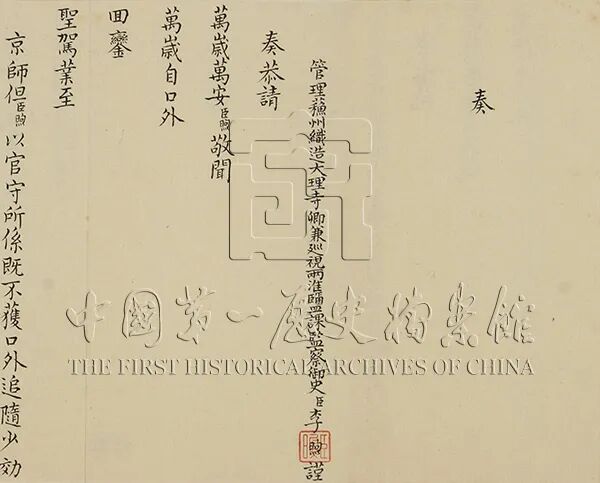 奏
管理蘇州織造大理寺卿兼巡視兩淮鹽課監察御史臣李煦謹
奏恭請
萬歲萬安臣煦敬聞
萬歲自口外
回鑾
聖駕業至
京師但臣煦以官守所係既不獲口外追隨少効
中国第一历史档案馆
THE FIRST HISTORICAL ARCHIVES OF CHINA